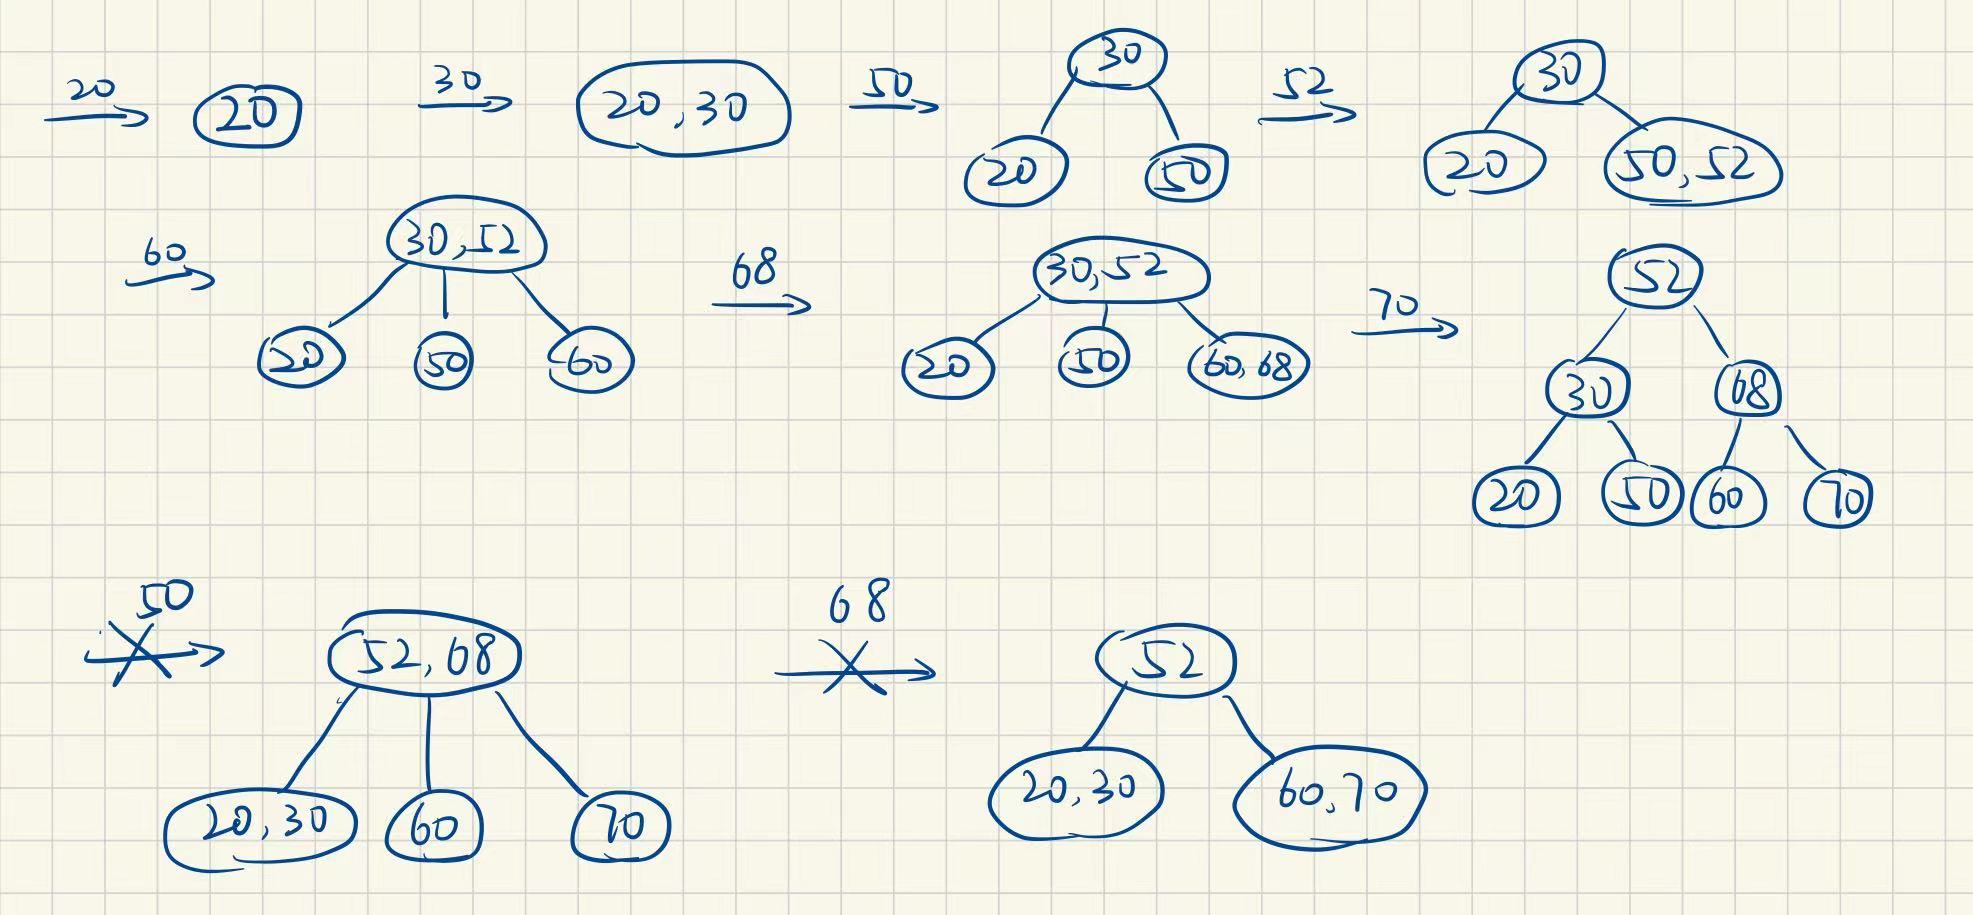 20
20
30
20,30
50
30
20
50
52
30
20
50,52
60
30,52
20
50
60
68
30,52
20
50
60,68
70
52
30
68
20
50
60
70
50
52,68
20,30
60
70
68
52
20,30
60,70